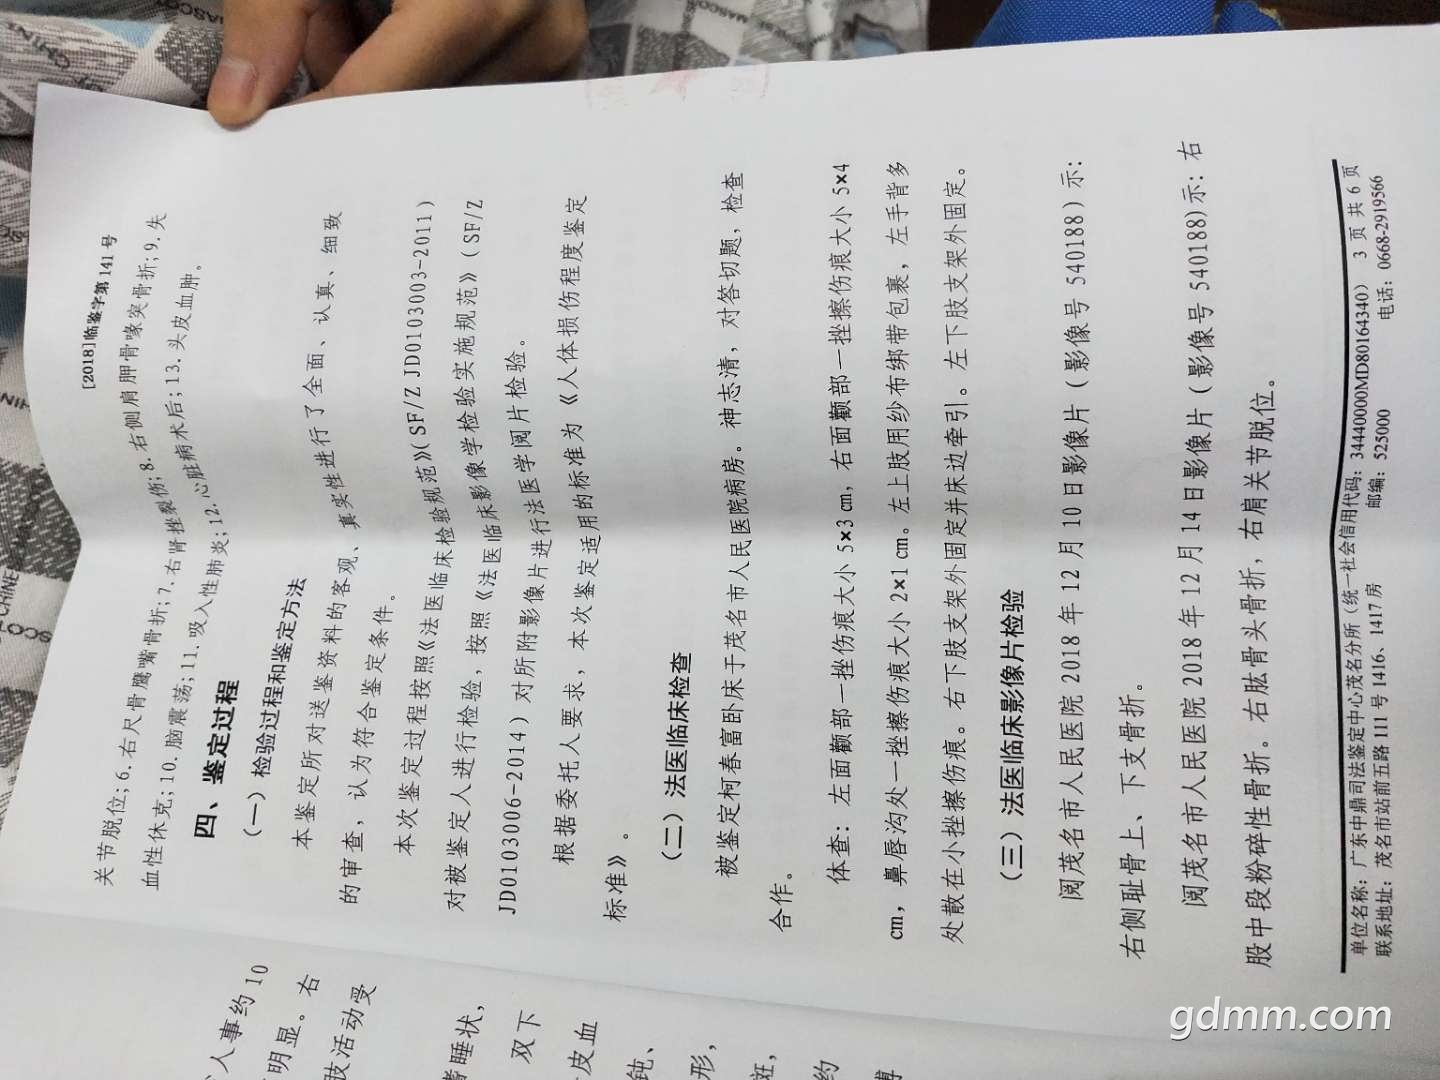 [2018]临鉴字第 141 号
关节脱位;6.右尺骨鹰嘴骨折;7.右肾挫裂伤;8.右侧肩胛骨喙突骨折;9.失
血性休克;10.脑震荡;11.吸入性肺炎;12.心脏病术后;13.头皮血肿。
四、鉴定过程
(一)检验过程和鉴定方法
本鉴定所对送鉴资料的客观、真实性进行了全面、认真、细致
的审查，认为符合鉴定条件。
本次鉴定过程按照《法医临床检验规范》(SF/Z JD0103003-2011)
对被鉴定人进行检验，按照《法医临床影像学检验实施规范》(SF/Z
JD0103006-2014)对所附影像片进行法医学阅片检验。
根据委托人要求，本次鉴定适用的标准为《人体损伤程度鉴定
标准》。
(二)法医临床检查
被鉴定柯春富卧床于茂名市人民医院病房。神志清，对答切题，检查
合作。
体查：左面颧部一挫伤痕大小 5×3 cm，右面颧部一挫擦伤痕大小 5×4
cm，鼻唇沟处一挫擦伤痕大小 2×1 cm。左上肢用纱布绑带包裹，左手背多
处散在小挫擦伤痕。右下肢支架外固定并床边牵引。左下肢支架外固定。
(三)法医临床影像片检验
阅茂名市人民医院 2018 年 12 月 10 日影像片(影像号 540188)示：
右侧耻骨上、下支骨折。
阅茂名市人民医院 2018 年 12 月 14 日影像片(影像号 540188)示：右
股中段粉碎性骨折。右肱骨头骨折，右肩关节脱位。
单位名称：广东中鼎司法鉴定中心茂名分所(统一社会信用代码：34440000MD80164340) 3 页 共 6 页
联系地址：茂名市站前五路 111 号 1416、1417 房 邮编：525000 电话：0668-2919566
人事约 10
明显。右
肢活动受
睡状，
双下
皮血
钝、
形，
斑，
约
gdmm.com